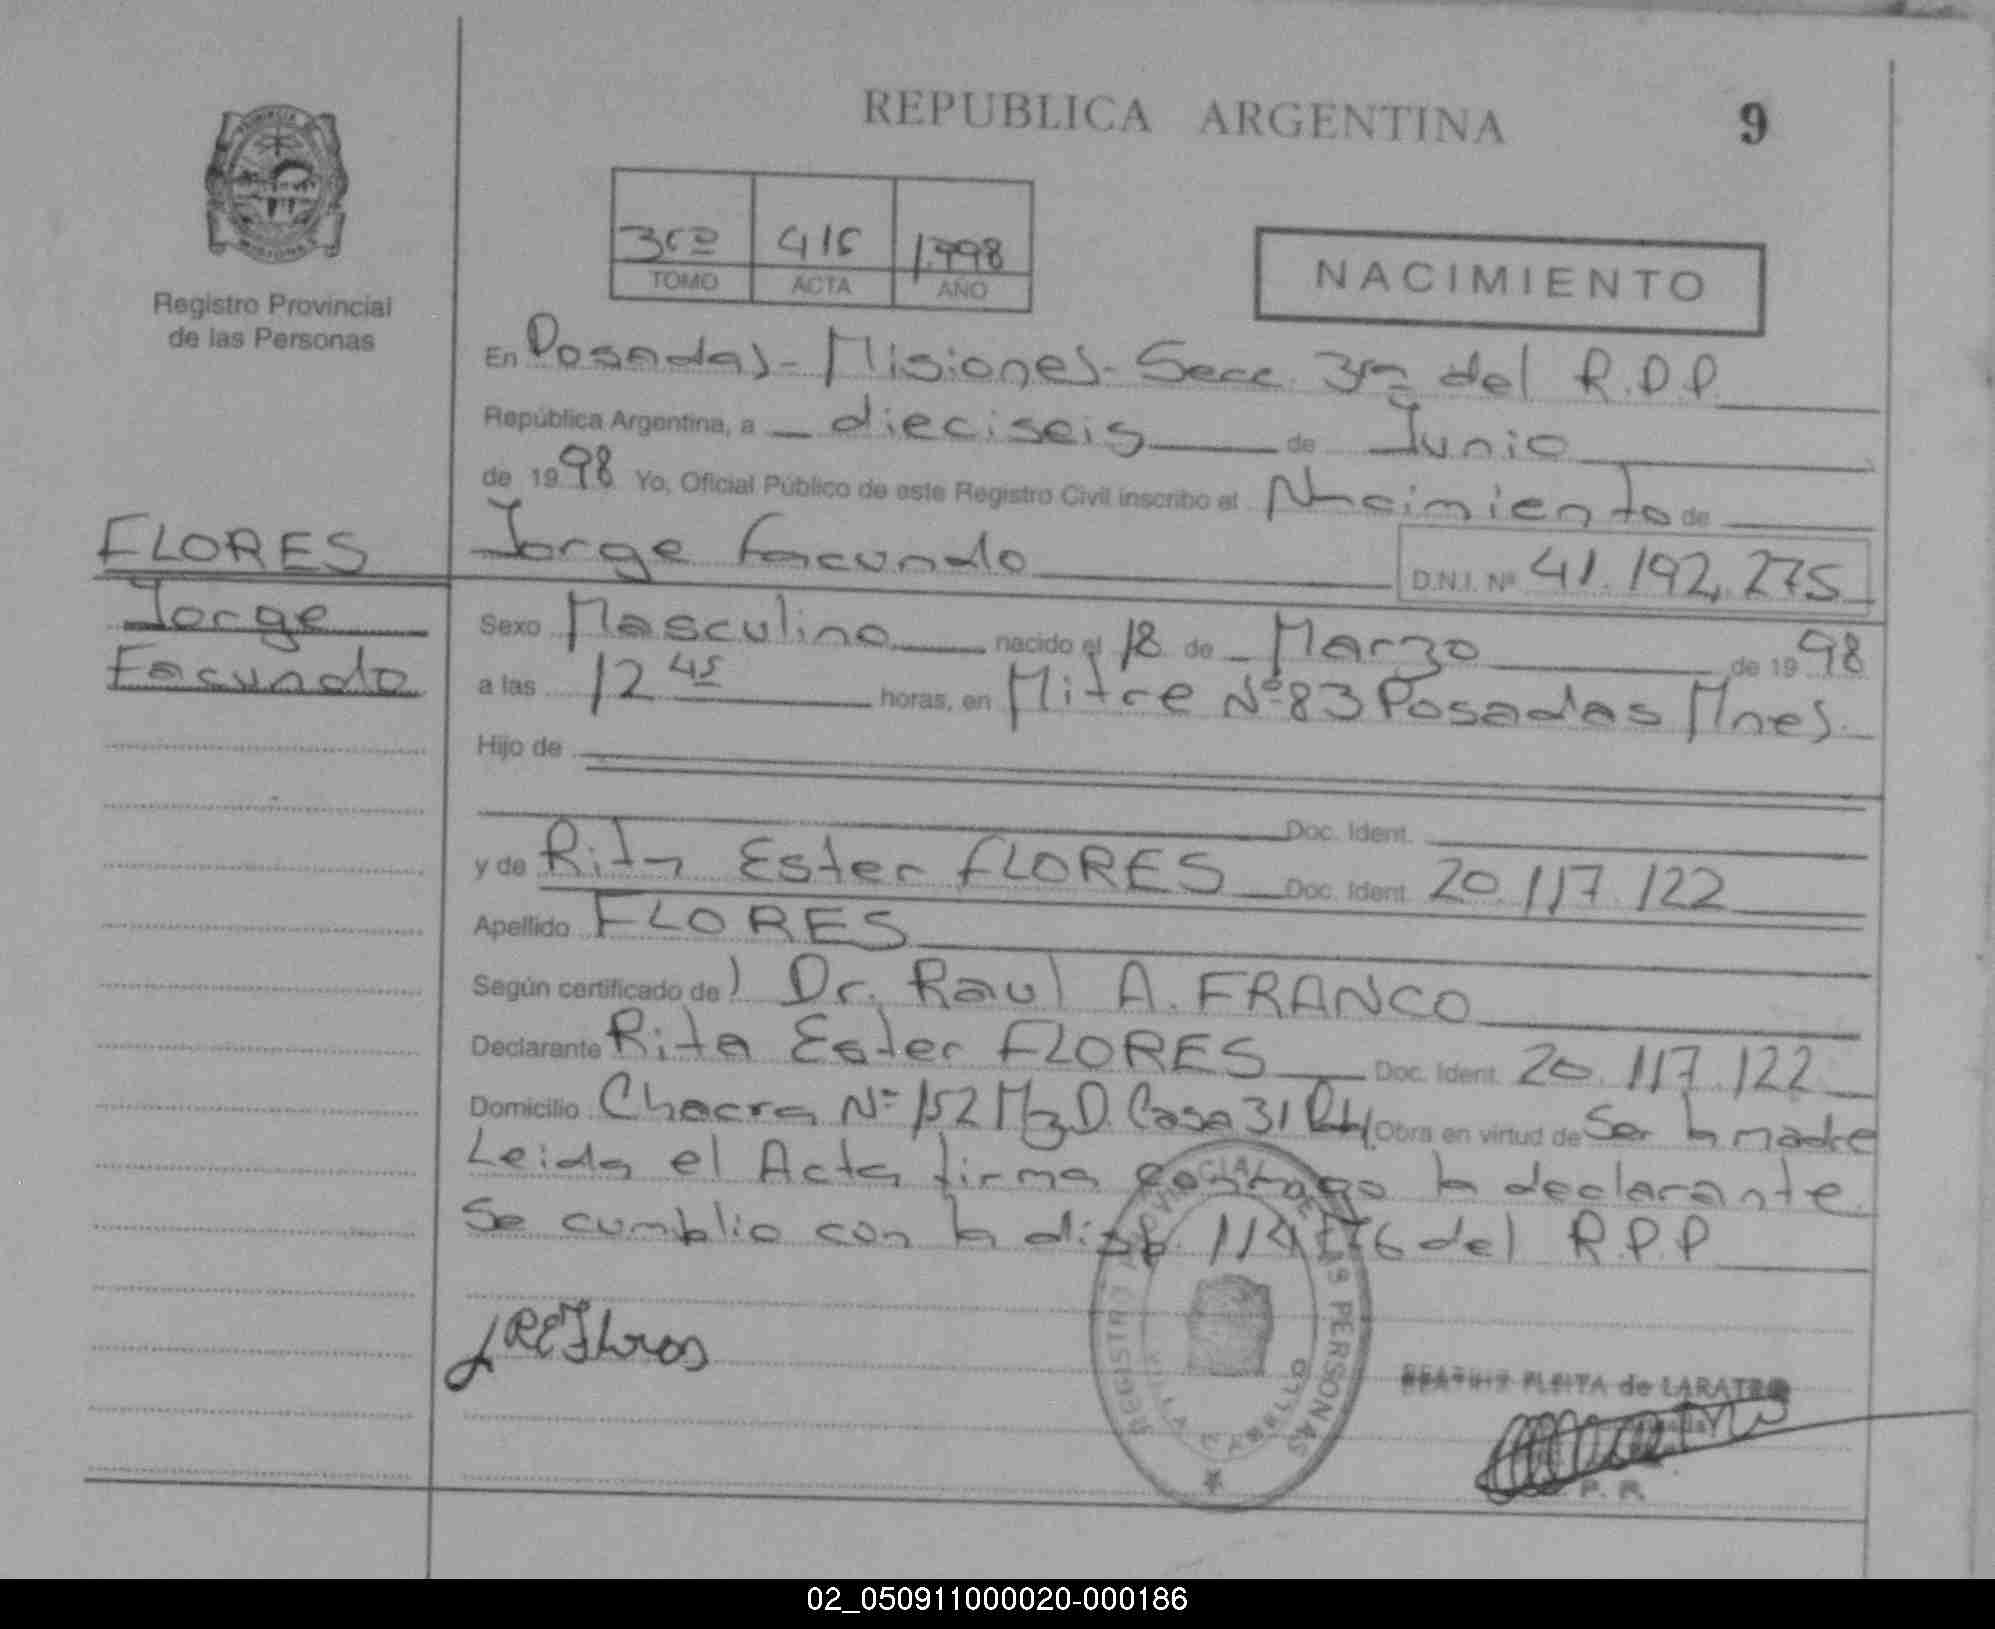 REPUBLICA ARGENTINA
9
Registro Provincial
de las Personas
3ro 415 1.998
TOMO ACTA AÑO
NACIMIENTO
En Posadas - Misiones - Secc. 3ra del R.P.P.
República Argentina, a dieciseis de Junio
de 1998 Yo, Oficial Público de este Registro Civil inscribo el Nacimiento de
FLORES
Jorge
Facundo
Jorge Facundo D.N.I. Nº 41.192.275
Sexo Masculino nacido el 18 de Marzo de 1998
a las 12 45 horas, en Mitre Nº 83 Posadas Mnes.
Hijo de
Doc. Ident.
y de Rita Ester FLORES Doc. Ident. 20.117.122
Apellido FLORES
Según certificado de Dr. Raul A. FRANCO
Declarante Rita Ester FLORES Doc. Ident. 20.117.122
Domicilio Chacra Nº 152 Mz D. Casa 31 Obra en virtud de Ser la madre
Leida el Acta firma conmigo la declarante.
Se cumplio con la disp. 114/76 del R.P.P
REFlores
REGISTRO PROVINCIAL DE LAS PERSONAS
VILLA CABELLO
BEATRIZ PLEITA de LARATRO
P. R.
02_050911000020-000186